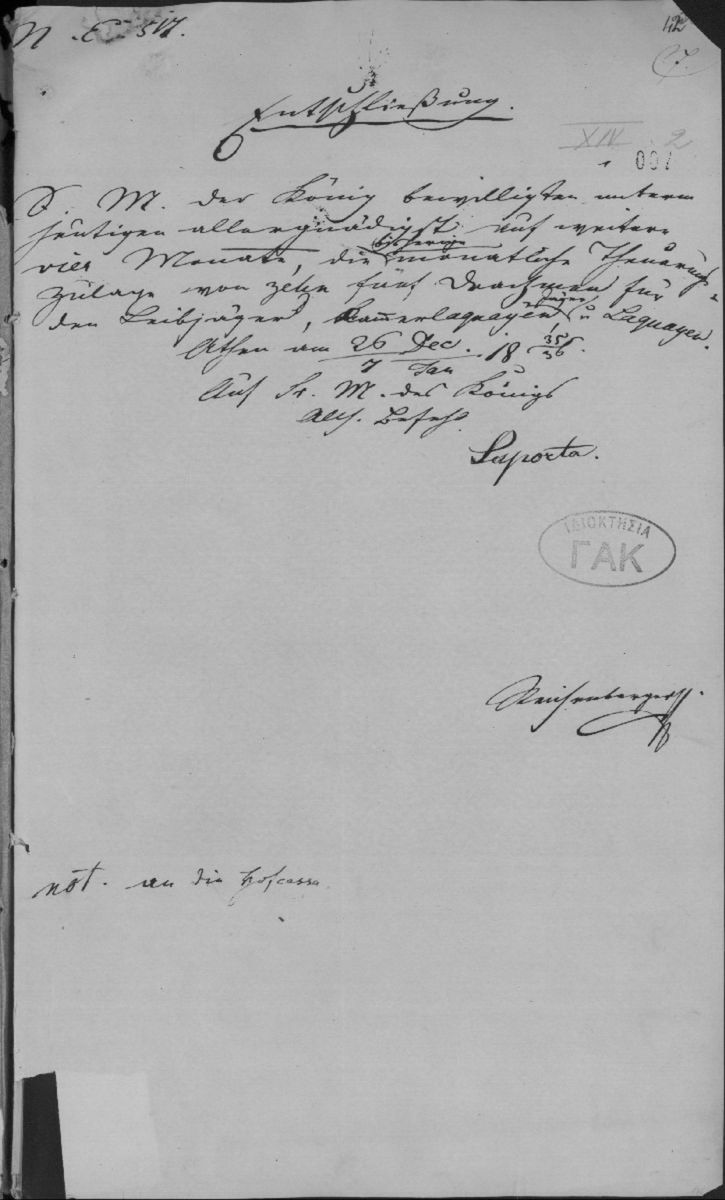 N. E. 517.
42
7.
Entschließung.
XIV 2
007
S. M. der König bewilligten unterm
heutigen allergnädigst auf weitere
vier Monate, die bisherige monatliche Theuerungs-
zulage von zehn fünf Drachmen für
den Leibjäger, Kammerlaquayen, u Laquayen.
Athen am 26 Dec. / 7 Jan 18 35/36.
Auf Sr. M. des Königs
Allh. Befehl
Laporta.
ΙΔΙΟΚΤΗΣΙΑ
ΓΑΚ
Reichenberger
not. an die Hofcassa